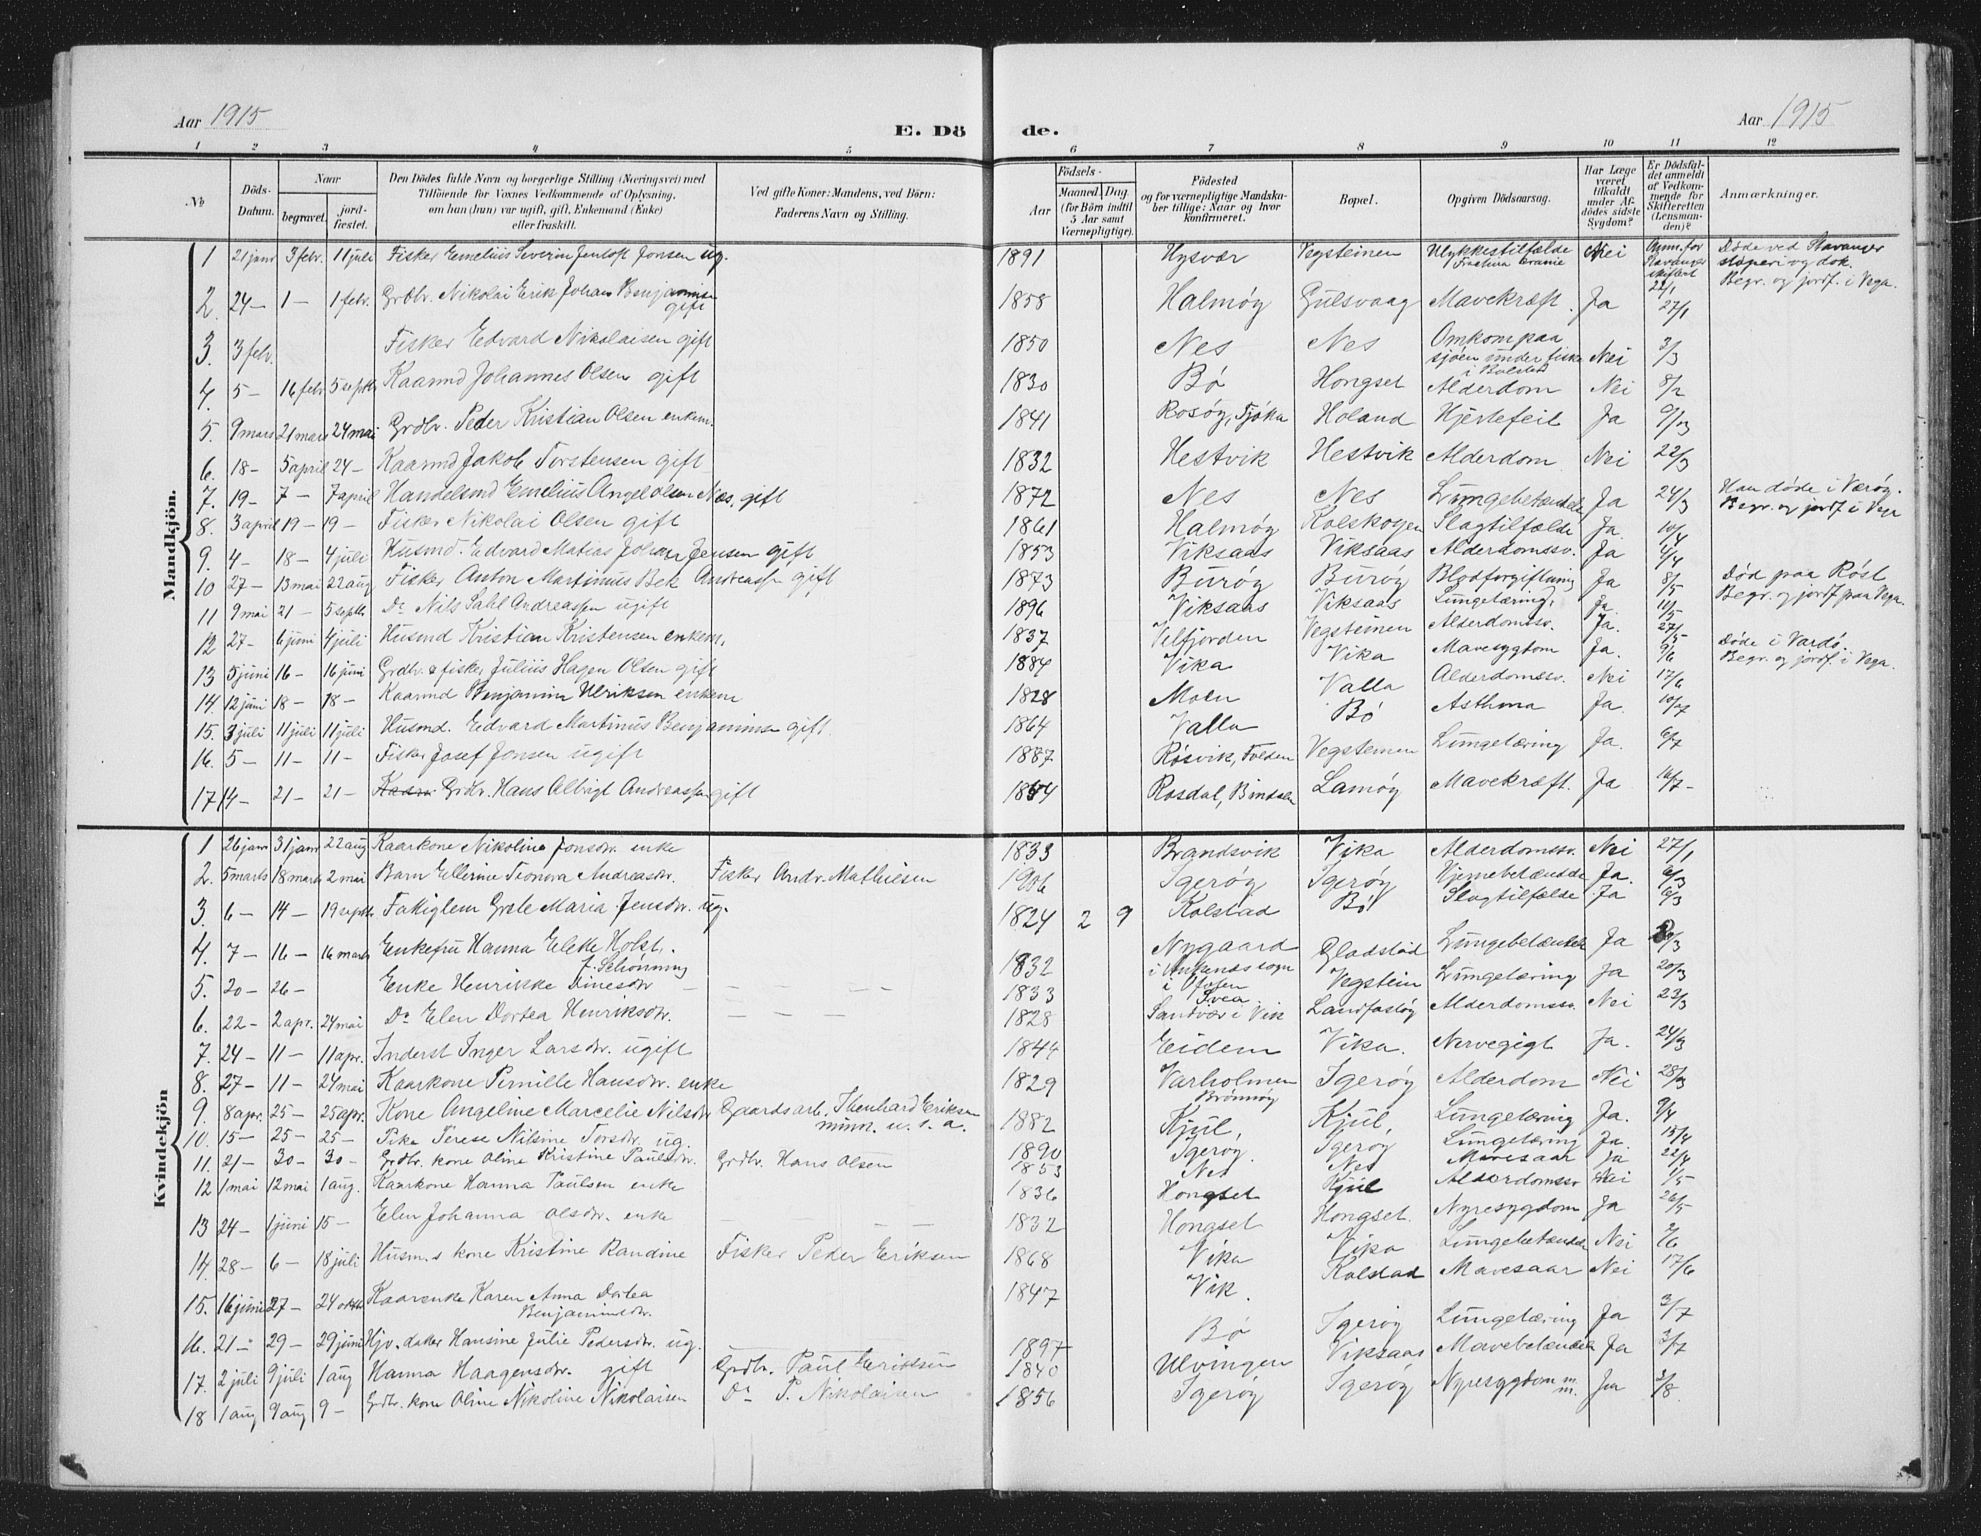 Aar 1915
E. Dö
de.
Aar 1915
1 2 3 4 5 6 7 8 9 10 11 12
No
Döds-Datum.
Naar
begravet.
jord-fæstet.
Den Dödes fulde Navn og borgerlige Stilling (Næringsvei) med
Tilföiende for Voxnes Vedkommende af Oplysning,
om han (hun) var ugift, gift, Enkemand (Enke)
eller fraskilt.
Ved gifte Koner: Mandens, ved Börn:
Faderens Navn og Stilling.
Födsels-
Aar
Maaned. Dag.
(for Börn indtil
5 Aar samt
Værnepligtige).
Födested
og for værnepligtige Mandska-
ber tillige: Naar og hvor
konfirmeret.
Bopæl.
Opgiven Dödsaarsag.
Har Læge
været
tilkaldt
under Af-
dödes sidste
Sygdom?
Er Dödsfal-
det anmeldt
af Vedkom-
mende for
Skifteretten
(Lensman-
den)?
Anmærkninger.
Mandkjön.
1 21 janr 3 febr. 11 juli Fisker Emelius Severin Jentoft Jonsen ug. 1891 Hysvær Vegsteinen Ulykkestilfælde Nei Anm. for Stavanger skifteret 22/1 Døde ved Stavanger støperi og dok. Begr. og jordf. i Vega.
2. 24 — 1 — 1 febr. Grdbr. Nikolai Erik Johan Benjaminsen gift 1858 Halmøy Gulsvaag Mavekræft. Ja 27/1
3. 3 febr. Fisker Edvard Nikolaisen gift 1850 Nes Nes Omkom paa sjøen under fiske Nei 3/3
4. 5 — 16 febr 5 septb Kaarmd Johannes Olsen gift 1830 Bø Hongset Alderdom Nei 8/2
5. 9 mars 21 mars 24 mai Grdbr. Peder Kristian Olsen enkem. 1841 Rosøy, Tjøka Holand Hjertefeil Ja 9/3
6. 18 — 5 april 24 — Kaarmd Jakob Torstensen gift 1832 Hestvik Hestvik Alderdom Nei 22/3
7. 19 — 7 — 7 april Handelsmd Emelius Angel Olsen Næs, gift 1872 Nes Nes Lungebetændelse Ja 24/3 Han døde i Værøy. Begr. og jordf i Vega
8. 3 april 19 — 19 — Fisker Nikolai Olsen gift 1861 Halmøy Kolskogen Slagtilfælde Ja. 10/4
9. 4 — 18 — 4 juli Husmd. Edvard Matias Johan Jensen gift 1853 Viksaas Viksaas Alderdomssv. Ja 4/4
10 27 — 13 mai 22 aug Fisker Anton Martinus Bek Andreassen gift 1873 Burøy Burøy Blodforgiftning Ja 8/5 Død paa Røst Begr. og jordf paa Vega.
11 9 mai 21 — 5 septb Do Nils Dahl Andreassen ugift 1896 Viksaas Viksaas Lungetæring, Ja. 11/5
12 27 — 6 juni 4 juli Husmd Kristian Kristensen enkem. 1837 Velfjorden Vegsteinen Alderdomssv. Ja. 27/5
13 5 juni 16 — 16 juni Grdbr. & fisker Julius Hagen Olsen gift 1884 Vika Vika Mavesygdom Ja. 9/6 Døde i Vardø. Begr. og jordf. i Vega.
14. 12 juni 18 — 18 — Kaarmd Benjamin Ulriksen enkem 1828 Moen Valla Alderdomssv. Nei 17/6
15. 3 juli 11 juli 11 juli Husmd. Edvard Martinus Benjaminsen gift. 1864 Valla Bø Asthma Ja. 10/7
16. 5 — 11 — 11 — Fisker Josef Jonsen ugift 1887 Røsvik, Folden Vegsteinen Lungetæring Ja. 6/7
17 14 — 21 — 21 — Grdbr. Hans Albrigt Andreassen gift 1854 Rosdal, Bindalen Lamøy Mavekræft. Ja 16/7 —
Kvindekjön
1 26 janr 31 janr 22 aug Kaarkone Nikoline Jonsdr. enke 1833 Brandsvik Vika Alderdomssv. Nei 27/1
2. 5 marts 18 marts 2 mai Barn Ellerine Leonora Andreasdr. Fisker Andr. Mathiesen 1906 Igerøy Igerøy Hjernebetændelse Ja. 6/3
3. 6 — 14 — 19 septb Fattiglem Grete Maria Jensdr. ug. 1824 2 9 Kolstad Bø Slagtilfælde Ja 6/3
4. 7 — 16 — 16 marts Enkefru Hanna Elekte Holst, f. Schønning 1832 Nygaard i Ankenes sogn i Ofoten Gladstad Lungebetændelse Ja
5. 20 — 26 — Enke Henrikke Dinesdr — — — — 1833 Svea Vegstein Lungetæring Ja 20/3
6. 22 — 2 apr. 24 mai Do Elen Dortea Henriksdr. — — — 1828 Sandvær i Vik Landfastøy Alderdomssv. Nei 23/3
7. 24 — 11 — 11 apr. Inderst Inger Larsdr. ugift 1844 Eidem Vika. Nervegigt Ja. 24/3
8. 27 — 11 — 24 mai Kaarkone Pernille Hansdr. enke 1829 Varholmen Brønnøy Igerøy Alderdom Nei 28/3
9. 8 apr. 25 — 25 apr. Kone Angeline Marcelie Nilsdr Gaardsarb. Thenhard Eriksen minn. u. s. a. 1882 Kjul, Kjul, Lungetæring Ja. 9/4
10. 15 — 25 — 25 — Pike Terese Nilsine Torsdr. ug. 1890 Igerøy. Igerøy Lungetæring Ja. 15/4
11. 21 — 30 — 30 — Grdbr. kone Oline Kristine Paulsdr. Grdbr. Hans Olsen 1853 Nes Nes Mavesaar Ja 22/4
12 1 mai 12 mai 1 aug. Kaarkone Hanna Paulsen enke 1836 Hongset Kjul Alderdomssv Nei 1/5
13 24 — 1 juni 15 — Elen Johanna Olsdr. enke — — — — 1832 Hongset Hongset. Nyresygdom Ja 26/5
14. 28 — 6 — 18 juli Husm.s kone Kristine Randine Fisker Peder Eriksen 1868 Vika Vika Lungebetændelse Nei 2/6
15. 16 juni 27 — 24 oktb Kaarenke Karen Anna Dortea Benjaminsdr. 1847 Vik. Kolstad Mavesaar Nei 17/6
16. 21 — 29 — 29 juni Hjv. datter Hansine Julie Pedersdr. ug. 1897 Bø Igerøy Lungetæring Ja 3/7
17. 2 juli 9 juli 1 aug Hanna Haagensdr. gift Grdbr. Paul Eriksen 1840 Ulvingen Viksaas Mavebetændelse Ja 3/7
18 1 aug 9 aug 9 — Grdbr. kone Oline Nikoline Nikolaisen Do P. Nikolaisen 1856 Igerøy Igerøy Nyresygdom m. m. Ja 3/8.